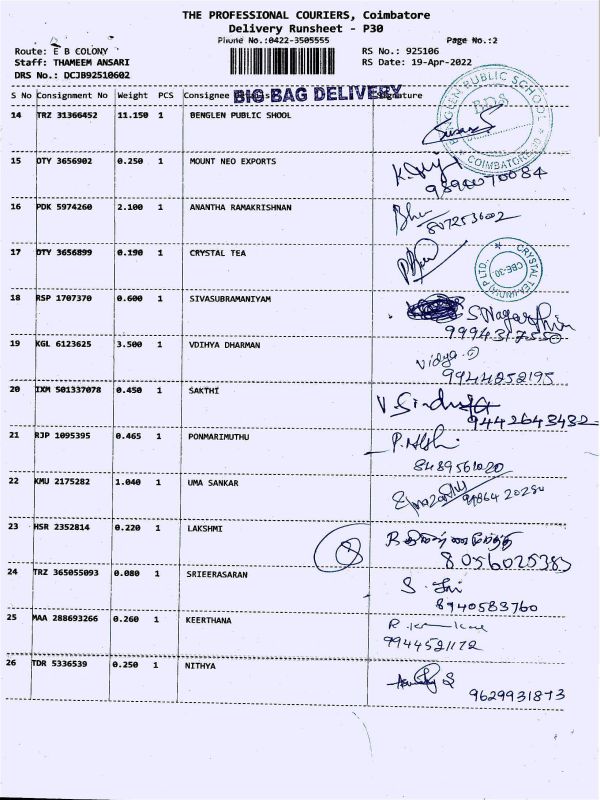 THE PROFESSIONAL COURIERS, Coimbatore
Delivery Runsheet - P30
Phone No.:0422-3505555 Page No.:2
Route: E B COLONY RS No.: 925106
Staff: THAMEEM ANSARI RS Date: 19-Apr-2022
DRS No.: DCJB92510602
S No Consignment No Weight PCS Consignee BIG BAG DELIVERY Signature
14 TRZ 31366452 11.150 1 BENGLEN PUBLIC SHOOL
BENGLEN PUBLIC SCHOOL
BPS
COIMBATORE
15 DTY 3656902 0.250 1 MOUNT NEO EXPORTS
16 PDK 5974260 2.100 1 ANANTHA RAMAKRISHNAN
17 DTY 3656899 0.190 1 CRYSTAL TEA
CRYSTAL TEA
P LTD.
CBE-30
18 RSP 1707370 0.600 1 SIVASUBRAMANIYAM
19 KGL 6123625 3.500 1 VDIHYA DHARMAN
Vidya
9944252195
20 IXM 501337078 0.450 1 SAKTHI
V. Sindhuja
9442643432
21 RJP 1095395 0.465 1 PONMARIMUTHU
8489561020
22 KMU 2175282 1.040 1 UMA SANKAR
23 HSR 2352814 0.220 1 LAKSHMI
8056025383
24 TRZ 365055093 0.080 1 SRIEERASARAN
8940583760
25 MAA 288693266 0.260 1 KEERTHANA
9944521172
26 TDR 5336539 0.250 1 NITHYA
9629931873